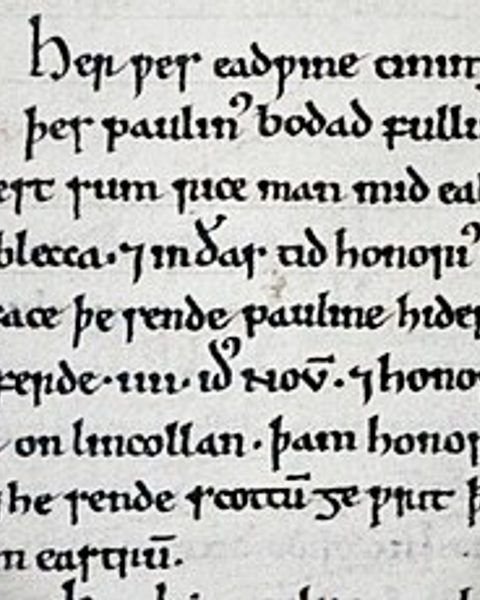 Her ƿes eadƿine cining
þes paulin᾽ bodad fullu
est sum rice man mid eal
blecca. ⁊ in ðas tid honori᾽
ace þe sende pauline hider
ferde. iiii. id᾽ Nov̄. ⁊ hono
on lincollan. þam honor
he sende scottū ge ƿrit þ
n eastrū.